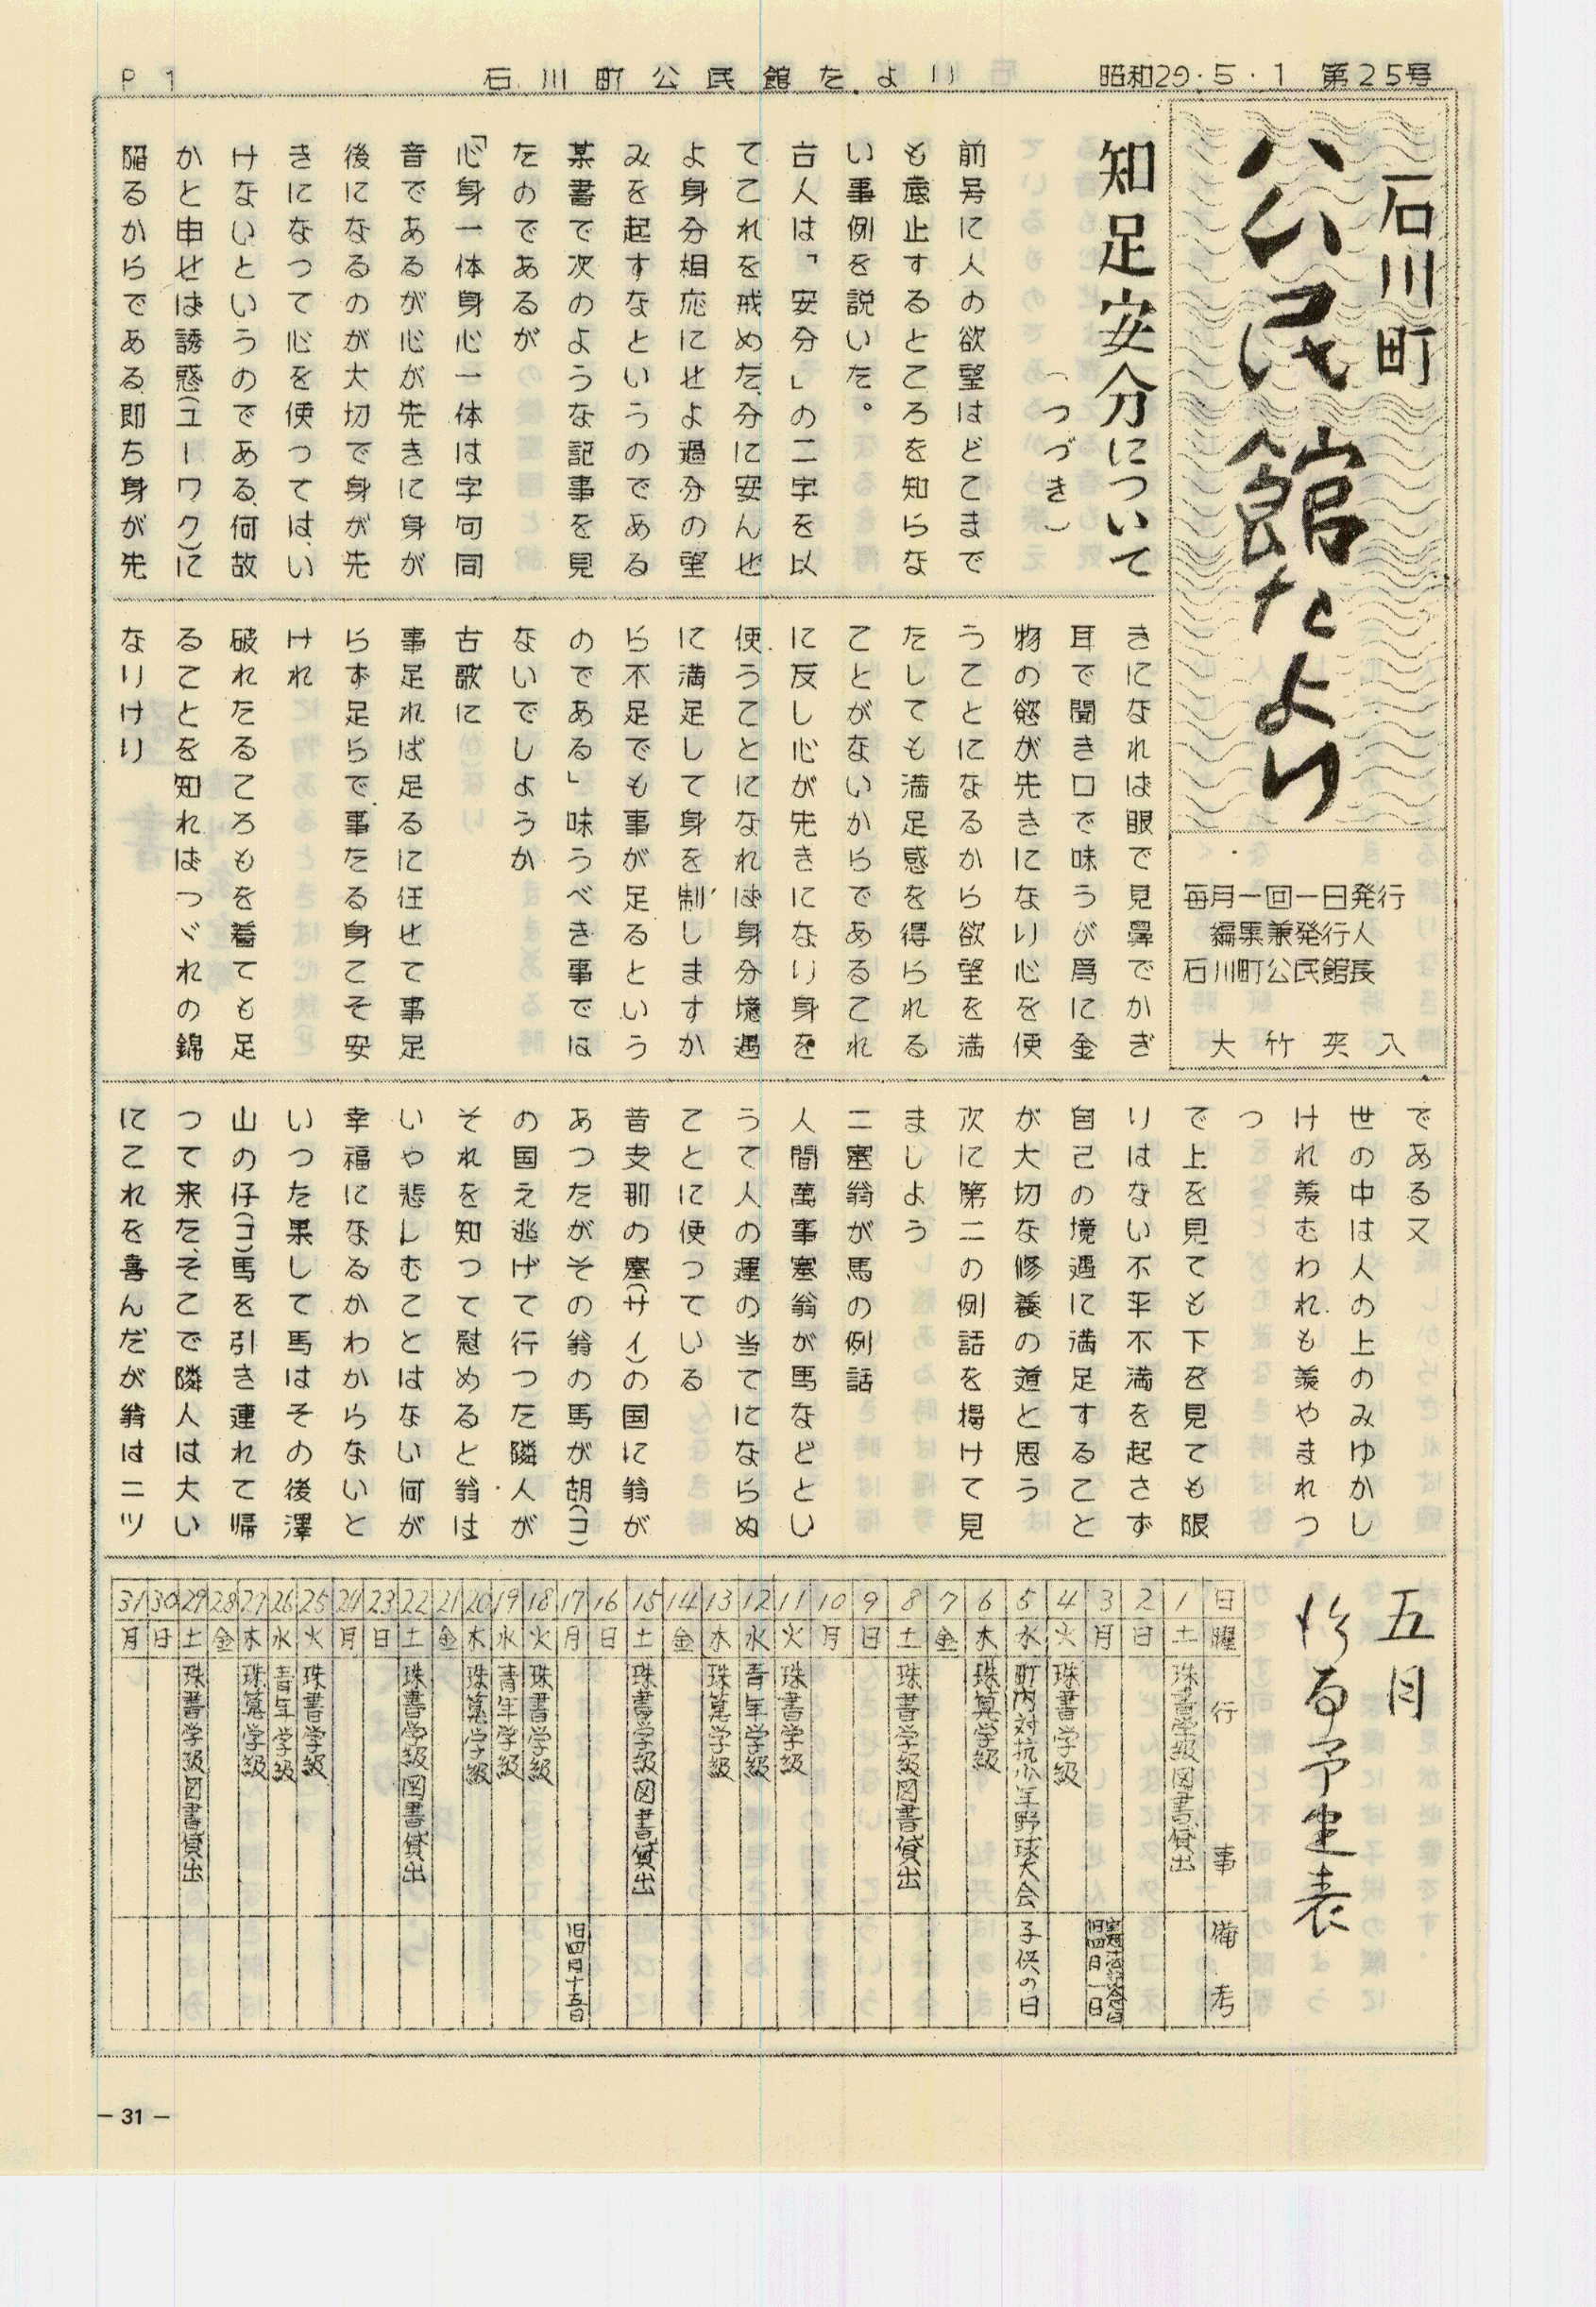 P1
石川町公民館たより
昭和29・5・1 第25号
石川町
公民館たより
毎月一回一日発行
編集兼発行人
石川町公民館長
大竹英入
知足安分について
（つづき）
前号に人の欲望はどこまで
も底止するところを知らな
い事例を説いた。
古人は「安分」の二字を以
てこれを戒めた、分に安んせ
よ身分相応にせよ過分の望
みを起すなというのである
某書で次のような記事を見
たのであるが
「心身一体身心一体は字句同
音であるが心が先きに身が
後になるのが大切で身が先
きになつて心を使つては、い
けないというのである、何故
かと申せは誘惑（ユーワク）に
陥るからである、即ち身が先
きになれは眼で見鼻でかぎ
耳で聞き口で味うが爲に金
物の慾が先きになり心を便
うことになるから欲望を満
たしても満足感を得られる
ことがないからであるこれ
に反し心が先きになり身を
便うことになれは身分境遇
に満足して身を制しますか
ら不足でも事が足るという
のである」味うべき事では
ないでしようか
古歌に
事足れば足るに任せて事足
らず足らで事たる身こそ安
けれ
破れたるころもを着ても足
ることを知れはつゞれの錦
なりけり
である又
世の中は人の上のみゆかし
けれ羨むわれも羨やまれつ
つ
で上を見ても下を見ても限
りはない不平不満を起さず
自己の境遇に満足すること
が大切な修養の道と思う
次に第二の例話を掲けて見
ましよう
二塞翁が馬の例話
人間萬事塞翁が馬などとい
うて人の運の当てにならぬ
ことに便つている
昔支那の塞（サイ）の国に翁が
あつたがその翁の馬が胡（コ）
の国え逃げて行つた隣人が
それを知つて慰めると翁は
いや悲しむことはない何が
幸福になるかわからないと
いつた果して馬はその後澤
山の仔（コ）馬を引き連れて帰
つて来た、そこで隣人は大い
にこれを喜んだが翁は二ツ
五月
行事予定表
日 曜 行事 備考
1 土 珠書学級図書貸出
2 日
3 月 憲法記念日 旧四月一日
4 火 珠書学級
5 水 町内対抗少年野球大会 子供の日
6 木 珠算学級
7 金
8 土 珠書学級図書貸出
9 日
10 月
11 火 珠書学級
12 水 青年学級
13 木 珠算学級
14 金
15 土 珠書学級図書貸出
16 日
17 月 旧四月十五日
18 火 珠書学級
19 水 青年学級
20 木 珠算学級
21 金
22 土 珠書学級図書貸出
23 日
24 月
25 火 珠書学級
26 水 青年学級
27 木 珠算学級
28 金
29 土 珠書学級図書貸出
30 日
31 月
— 31 —